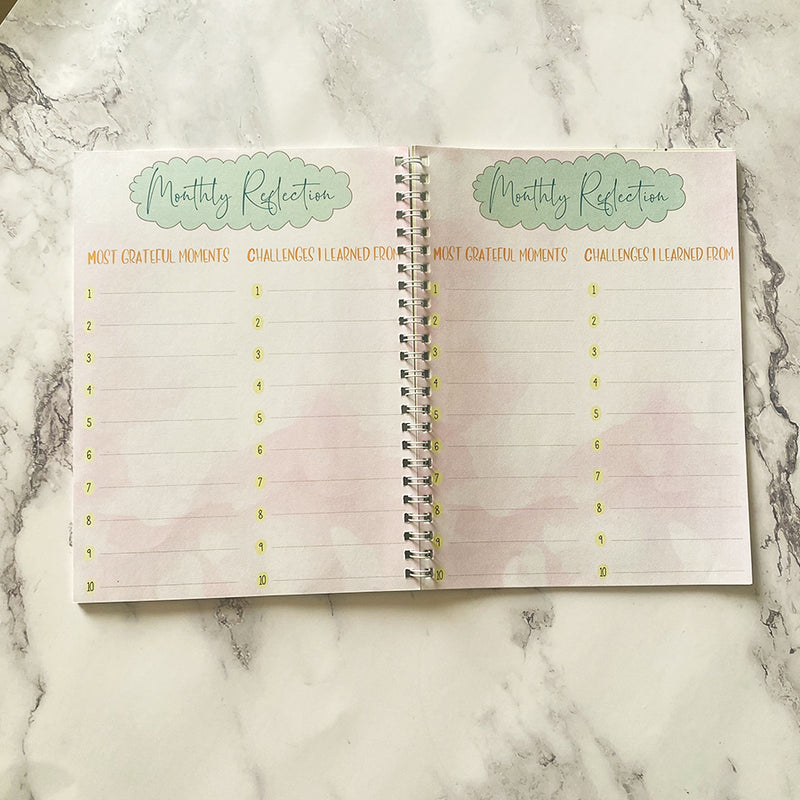 Monthly Reflection
MOST GRATEFUL MOMENTS CHALLENGES I LEARNED FROM
1 1
2 2
3 3
4 4
5 5
6 6
7 7
8 8
9 9
10 10
Monthly Reflection
MOST GRATEFUL MOMENTS CHALLENGES I LEARNED FROM
1 1
2 2
3 3
4 4
5 5
6 6
7 7
8 8
9 9
10 10